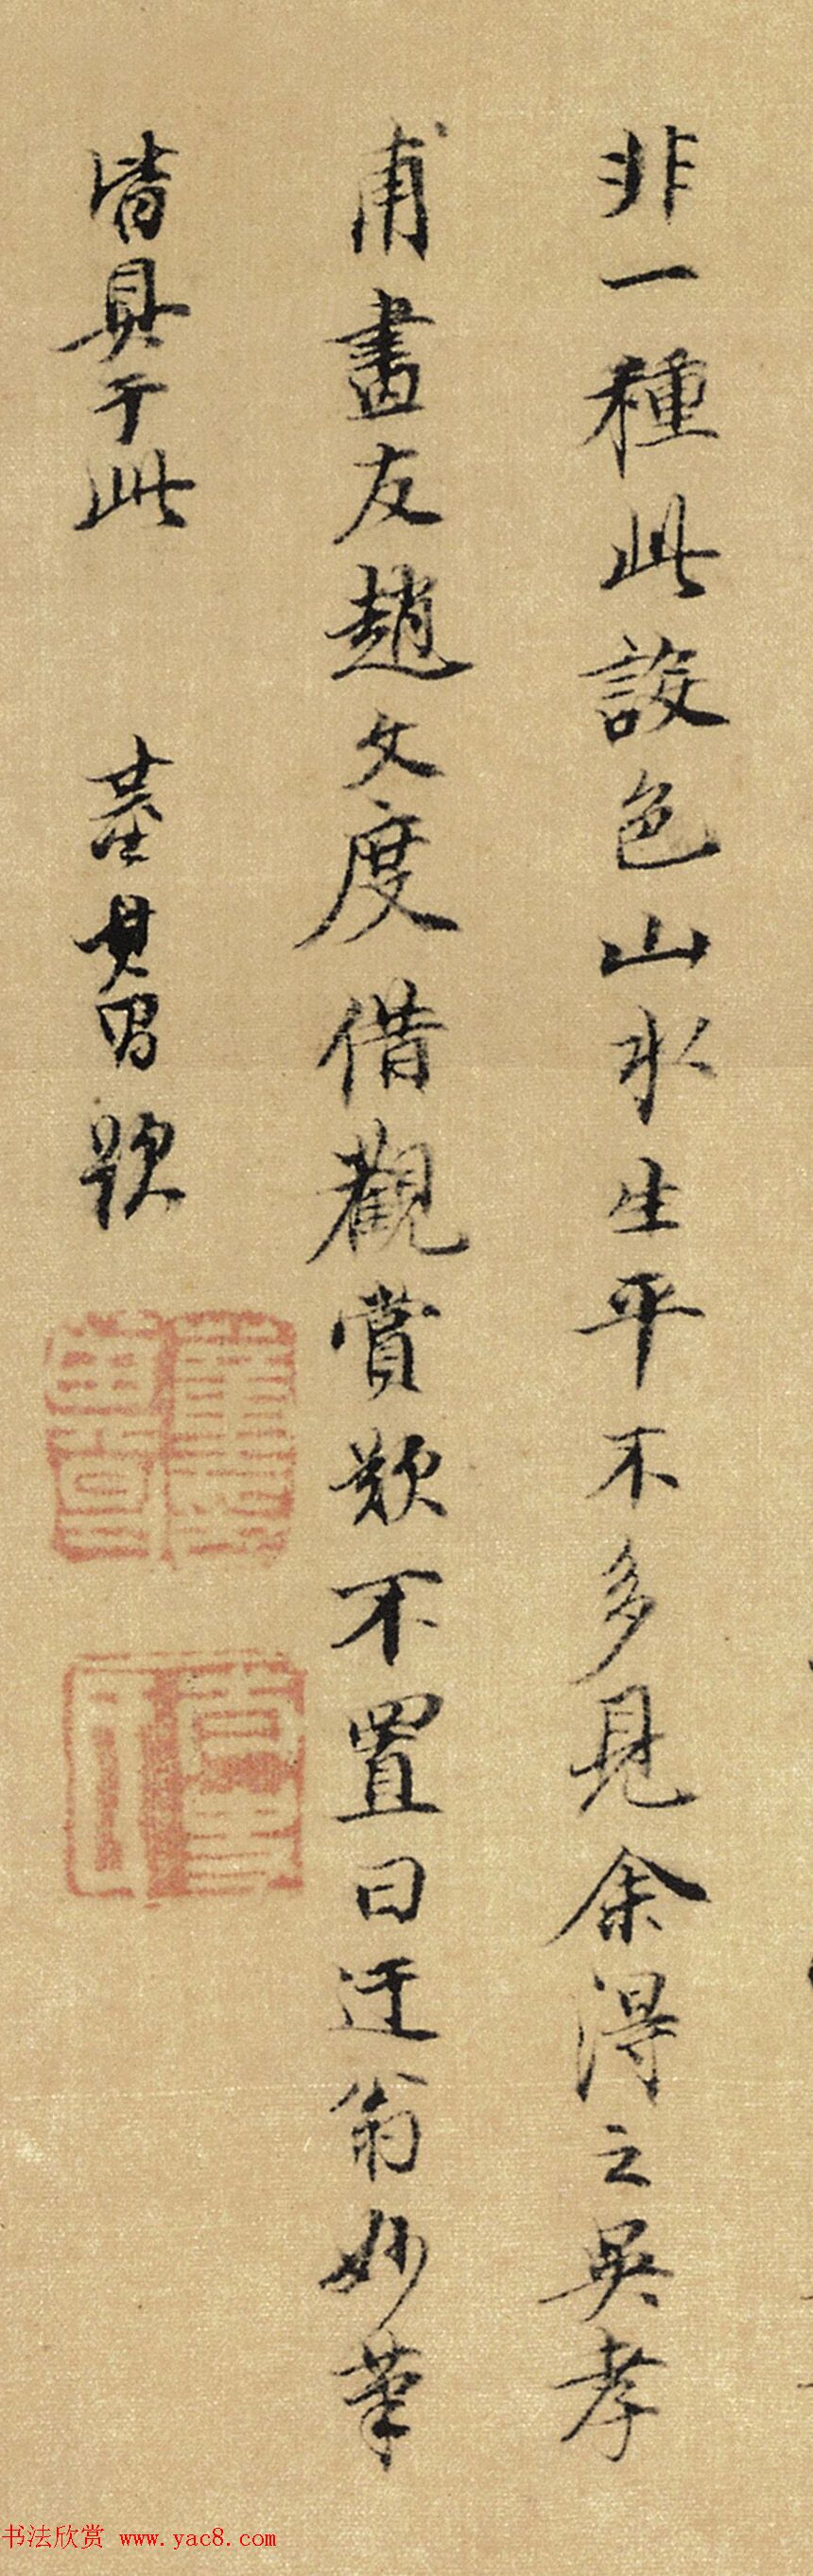 非一種此設色山水生平不多見余得之吳孝
甫畫友趙文度借觀賞歎不置曰迂翁妙筆
皆具于此 董其昌題
书法欣赏 www.yac8.com